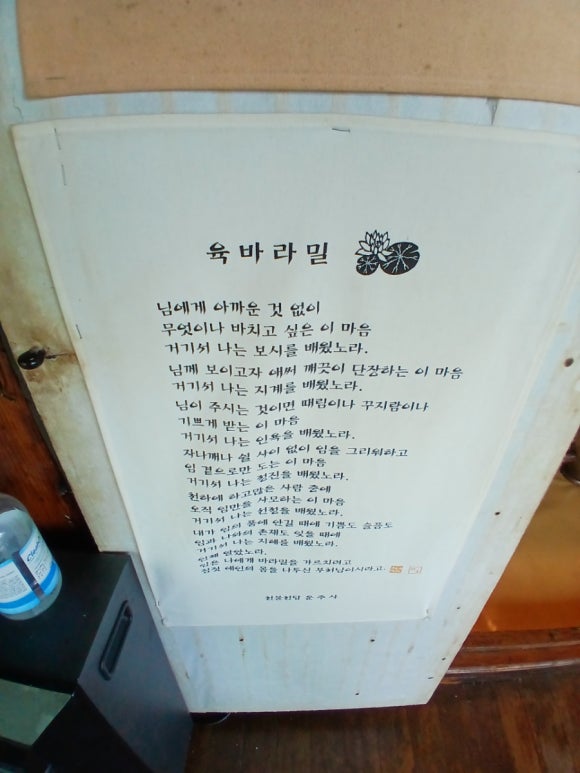 육바라밀
님에게 아까운 것 없이
무엇이나 바치고 싶은 이 마음
거기서 나는 보시를 배웠노라.
님께 보이고자 애써 깨끗이 단장하는 이 마음
거기서 나는 지계를 배웠노라.
님이 주시는 것이면 때림이나 꾸지람이나
기쁘게 받는 이 마음
거기서 나는 인욕을 배웠노라.
자나깨나 쉴 사이 없이 임을 그리워하고
임 곁으로만 도는 이 마음
거기서 나는 정진을 배웠노라.
천하에 하고많은 사람 중에
오직 임만을 사모하는 이 마음
거기서 나는 선정을 배웠노라.
내가 임의 품에 안길 때에 기쁨도 슬픔도
임과 나와의 존재도 잊을 때에
거기서 나는 지혜를 배웠노라.
인제 알았노라.
임은 나에게 바라밀을 가르치려고
짐짓 애인의 몸을 나투신 부처님이시라고.
천불천탑 운주사